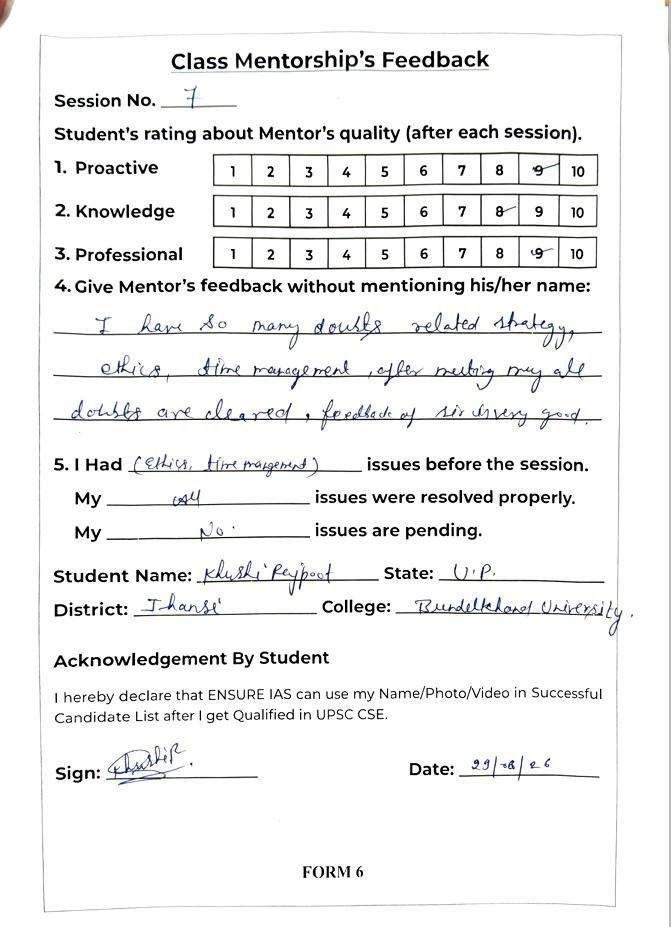 Class Mentorship's Feedback
Session No. 7
Student's rating about Mentor's quality (after each session).
1. Proactive 1 2 3 4 5 6 7 8 9 10
2. Knowledge 1 2 3 4 5 6 7 8 9 10
3. Professional 1 2 3 4 5 6 7 8 9 10
4. Give Mentor's feedback without mentioning his/her name:
I have so many doubts related strategy,
ethics, time management, after meeting my all
doubts are cleared, feedback of sir is very good.
5. I Had (Ethics, time management) issues before the session.
My all issues were resolved properly.
My No. issues are pending.
Student Name: Khushi Rejpoot State: U.P.
District: Jhansi College: Bundelkhand University.
Acknowledgement By Student
I hereby declare that ENSURE IAS can use my Name/Photo/Video in Successful
Candidate List after I get Qualified in UPSC CSE.
Sign: Khushi R. Date: 29/08/26
FORM 6